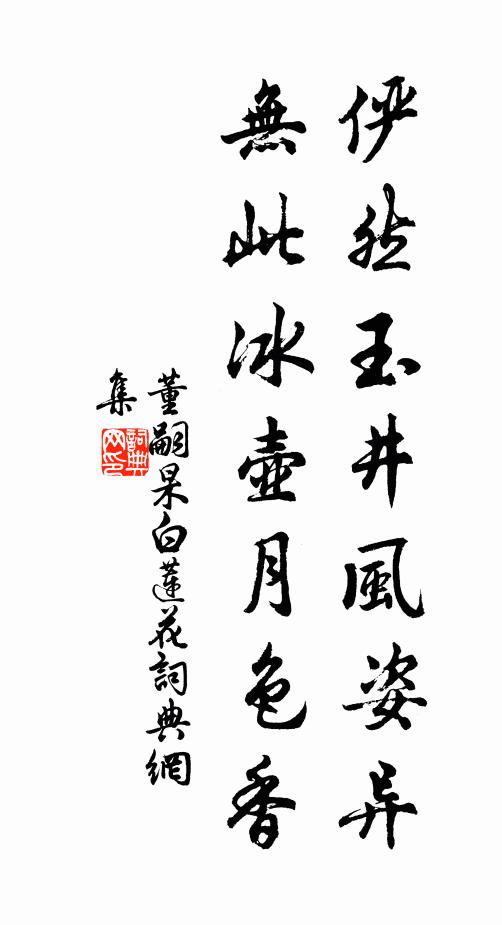 俨然玉井風姿异
無此冰壺月色香
董嗣杲白蓮花詞典網
集
詞典
网印